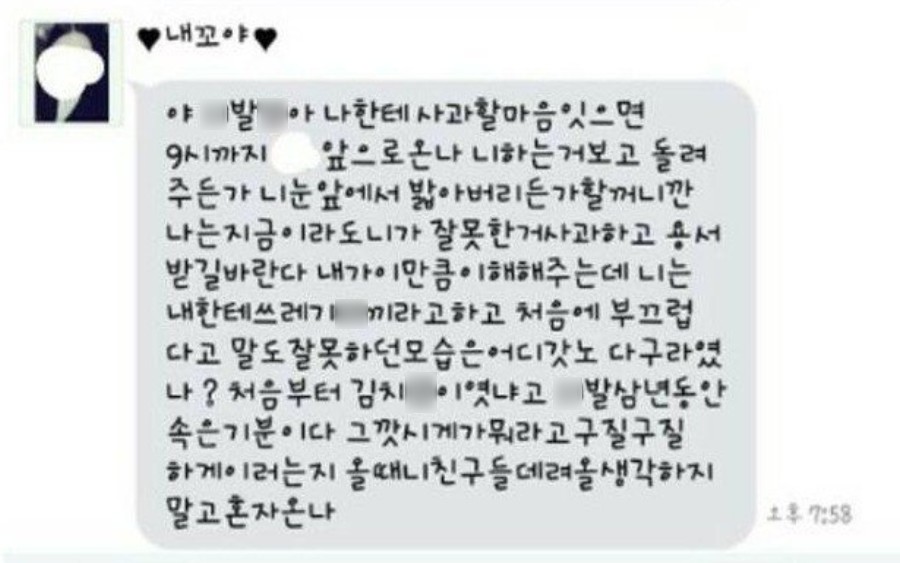 ♥내꼬야♥
야 발 아 나한테 사과할마음잇으면
9시까지 앞으로온나 니하는거보고 돌려
주든가 니눈앞에서 밟아버리든가할꺼니깐
나는지금이라도니가 잘못한거사과하고 용서
받길바란다 내가이만큼이해해주는데 니는
내한테쓰레기 끼라고하고 처음에 부끄럽
다고 말도잘못하던모습은어디갓노 다구라였
나? 처음부터 김치 이엿냐고 발삼년동안
속은기분이다 그깟시계가뭐라고구질구질
하게이러는지 올때니친구들데려올생각하지
말고혼자온나
오후 7:58